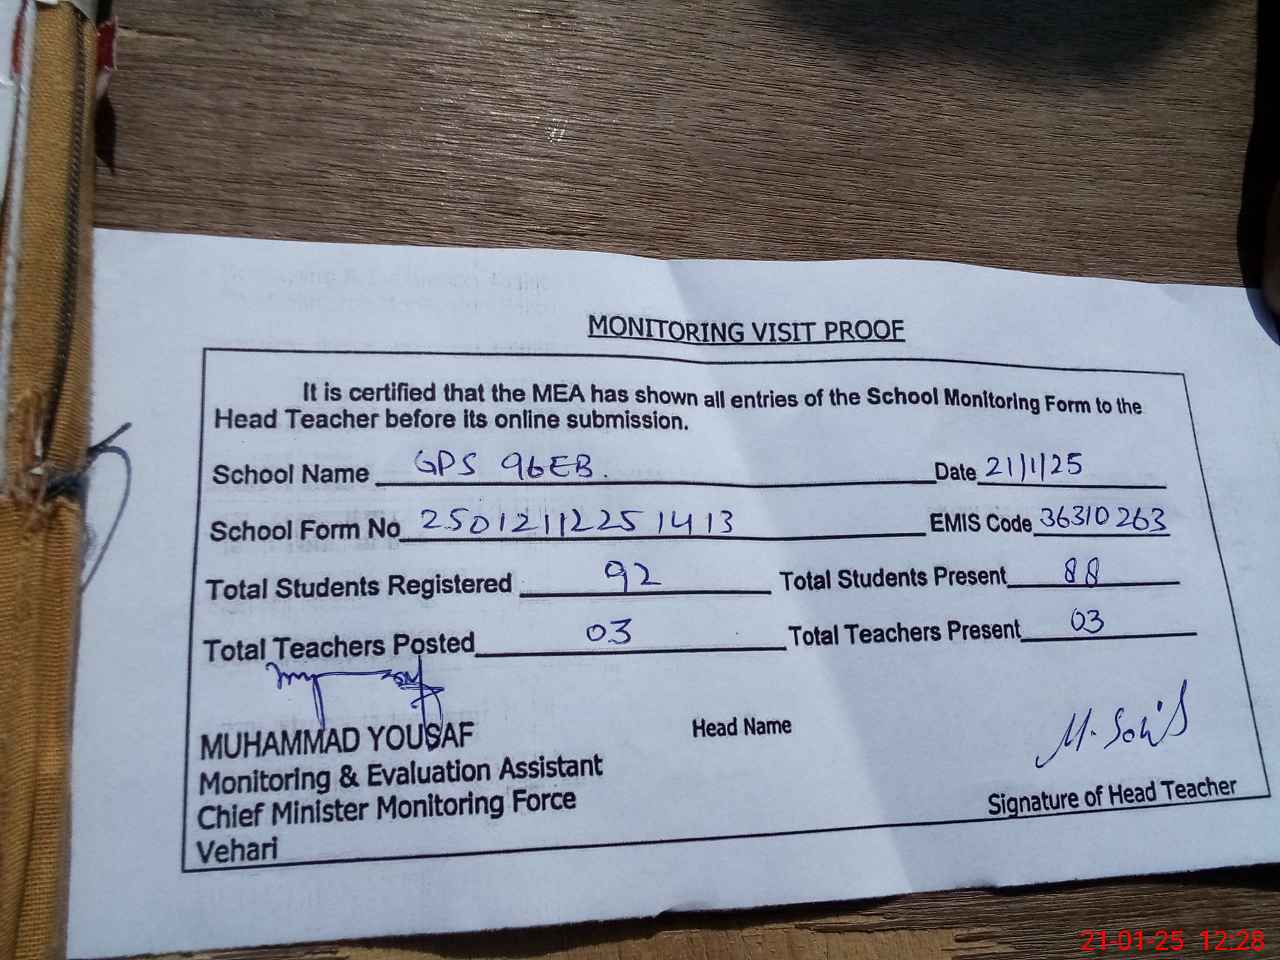 MONITORING VISIT PROOF
It is certified that the MEA has shown all entries of the School Monitoring Form to the
Head Teacher before its online submission.
School Name GPS 96EB. Date 21/1/25
School Form No 2501211225 1413 EMIS Code 36310263
Total Students Registered 92 Total Students Present 88
Total Teachers Posted 03 Total Teachers Present 03
MUHAMMAD YOUSAF Head Name
Monitoring & Evaluation Assistant
Chief Minister Monitoring Force Signature of Head Teacher
Vehari
21-01-25 12:28